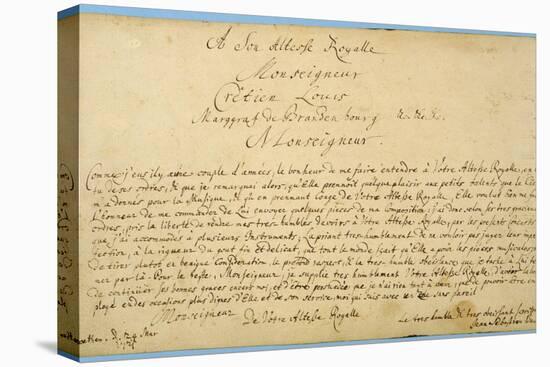 A Son Altesse Royalle
Monseigneur
Crètien Louis
Marggraf de Brandenbourg &c. &c. &c.
Monseigneur.
Comme j'eus il y a une couple d'années, le bonheur de me faire entendre à Votre Altesse Royalle, en
tu de ses ordres, & que je remarquai alors, qu'Elle prennoit quelque plaisir aux petits talents que le Ciel
m'a donnés pour la Musique, & qu'en prennant Conge de Votre Altesse Royalle, Elle voulut bien me
l'honneur de me commander de Lui envoyer quelques pieces de ma Composition: j'ai donc selon ses tres gracieux
ordres, pris la liberté de rendre mes tres-humbles devoirs à Votre Altesse Royalle, par les presents Concerts
que j'ai accommodés à plusieurs Instruments; La priant tres-humblement de ne vouloir pas juger leur imper-
fection, à la rigueur du gout fin et delicat, que tout le monde sçait qu'Elle a pour les pièces musicales
de tirer plutot en benigne Consideration, le profond respect, & la tres-humble obeissance que je tache à Lui te-
ner par là. Pour le reste, Monseigneur, je supplie tres humblement Votre Altesse Royalle, d'avoir la bonté
de continüer ses bonnes graces envers moi, et d'être persuadèe que je n'ai rien tant à cœur, que de pouvoir être em-
ployé en des occasions plus dignes d'Elle et de son service, moi qui suis avec un zele sans pareil
Monseigneur
De Votre Altesse Royalle
Le tres humble & tres obeissant serviteur
Coethen. d. 24 Mar
1721
Jean Sebastien